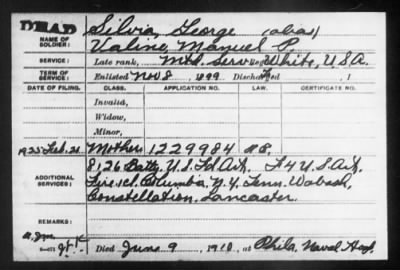 DEAD
NAME OF SOLDIER: Silvia, George (alias)
Valine, Manuel P.
SERVICE: Late rank, Mtd. Serv. White, U.S.A.
TERM OF SERVICE: Enlisted Nov 8, 1899 Discharged , 1
DATE OF FILING. CLASS. APPLICATION NO. LAW. CERTIFICATE NO.
Invalid,
Widow,
Minor,
1925 Feb. 21 Mother 1229984
ADDITIONAL SERVICES: 8, 126 Batty. U.S. Fd Art. F 4 U.S. Art.
Columbia, N.Y. Tenn. Wabash,
Constellation, Lancaster.
REMARKS:
Died June 9, 1910, at Phila. Naval Hosp.